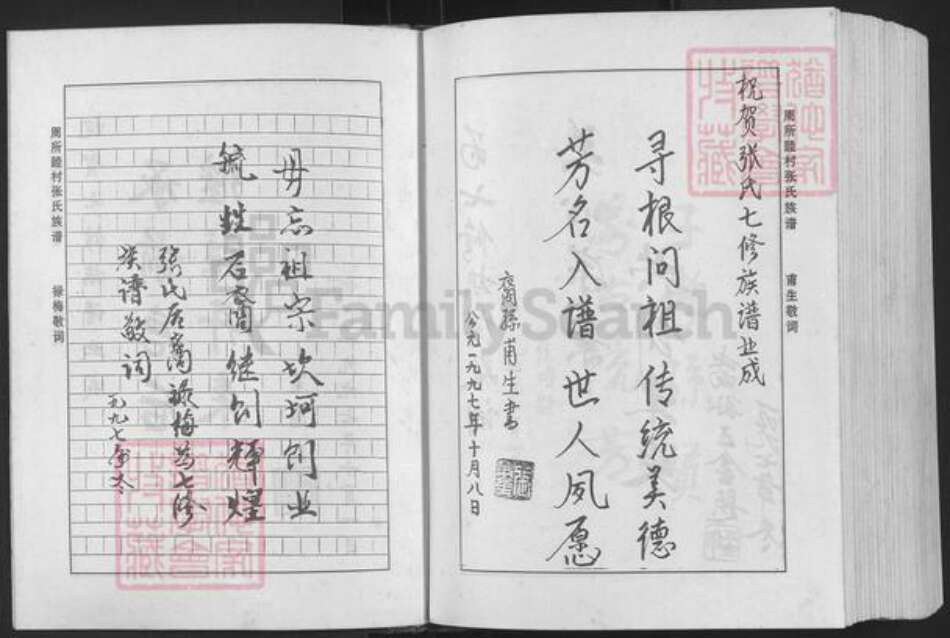 祝贺张氏七修族谱业成
寻根问祖传统美德
芳名入谱世人夙愿
裔孙甫生书
公元一九九七年十月八日
周所睦村张氏族谱
甫生敬词
毋忘祖宗坎坷创业
毓甡后裔继创辉煌
张氏后裔禄梅为七修
族谱敬词
一九九七年冬
周所睦村张氏族谱
禄梅敬词
FamilySearch